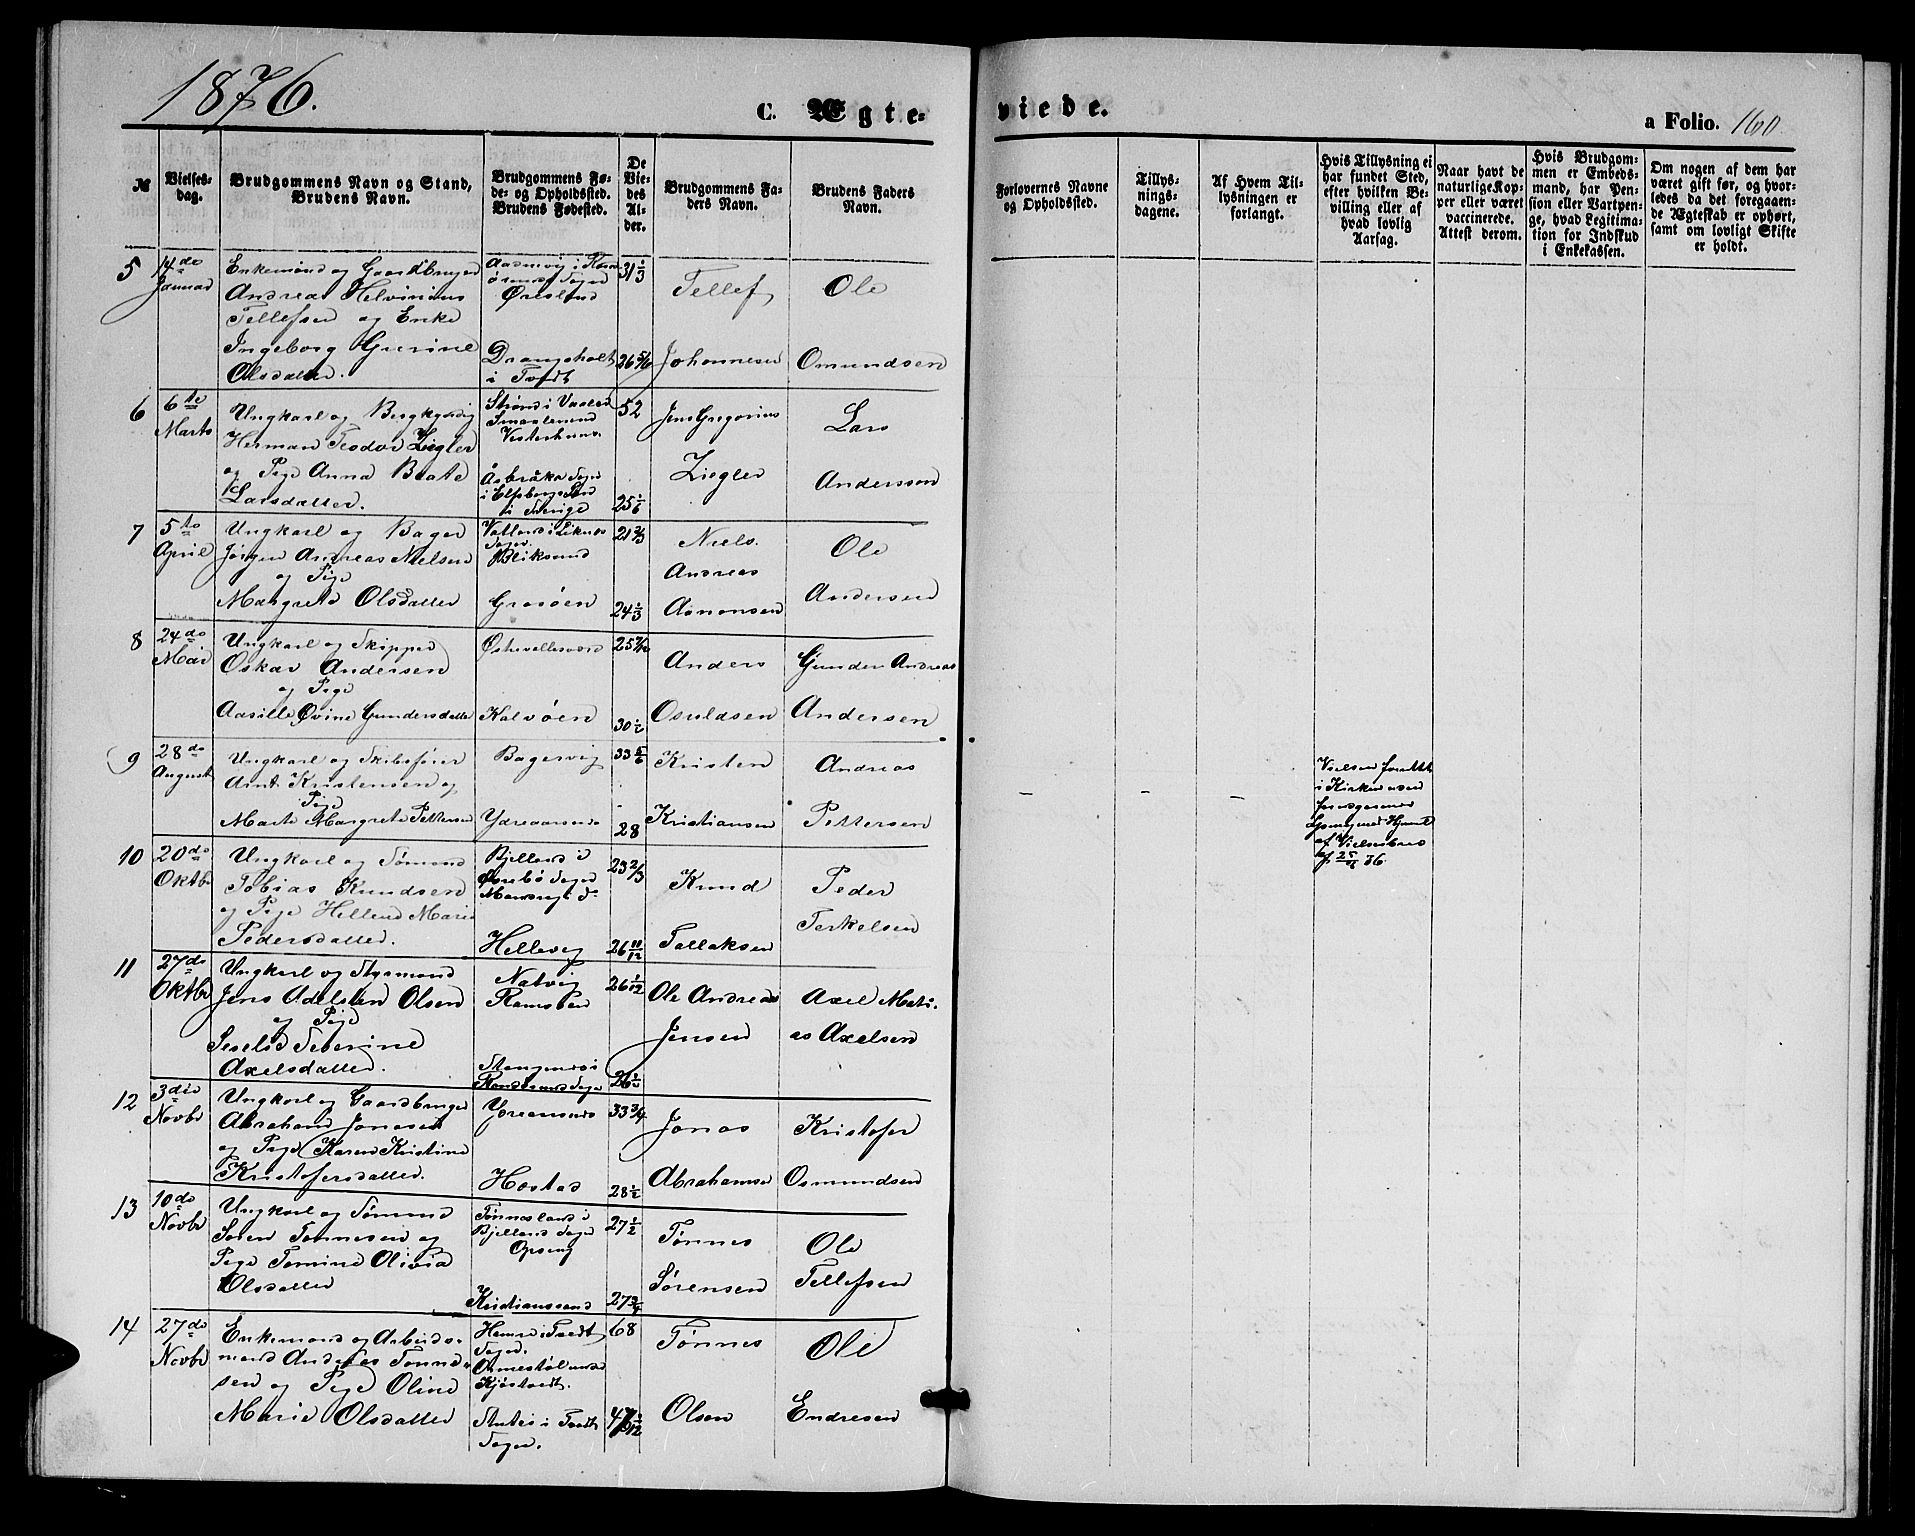 1876.
C. Ægte-
viede.
a Folio. 160.
№
Vielses-
dag.
Brudgommens Navn og Stand,
Brudens Navn.
Brudgommens Fø-
de- og Opholdssted.
Brudens Fødested.
De
Vie-
des
Al-
der.
Brudgommens Fa-
ders Navn.
Brudens Faders
Navn.
Forlovernes Navne
og Opholdssted.
Tillys-
nings-
dagene.
Af Hvem Til-
lysningen er
forlangt.
Hvis Tillysning ei
har fundet Sted,
efter hvilken Be-
villing eller af
hvad lovlig
Aarsag.
Naar havt de
naturlige Kop-
per eller været
vaccinerede.
Attest derom.
Hvis Brudgom-
men er Embeds-
mand, har Pen-
sion eller Vartpen-
ge, hvad Legitima-
tion for Indskud
i Enkekassen.
Om nogen af dem har
været gift før, og hvor-
ledes da det foregaaen-
de Ægteskab er ophørt,
samt om lovligt Skifte
er holdt.
5
14de
Januar
Enkemand og Gaardbruger
Andreas Helvinius
Tellefsen og Enke
Ingeborg Gurine
Olsdatter.
Øresland
Drangsholt
i Tvedt
31 1/3
26 5/6
Tellef
Johannesen
Ole
Omundsen
6
6te
Marts
Ungkarl og
Herman Teodor Ziegler
og Pige Anna Beate
Larsdatter.
i Sverige
52
25 1/6
Jens Gregorius
Ziegler
Lars
Andersson
7
5te
April
Ungkarl og Bager
Jørgen Andreas Nielsen
og Pige
Margrete Olsdatter
Sogn.
Bliksund
Grosøen
21 2/3
24 1/3
Niels
Andreas
Aanonsen
Ole
Andersen
8
24de
Mai
Ungkarl og Skipper
Oskar Andersen
og Pige
Aasille Øvine Gundersdatter
Kalvøen
25 7/12
30 1/2
Anders
Osuldsen
Gunder Andreas
Andersen
9
28de
August
Ungkarl og Skibsfører
Aint Kristensen og
Pige
Marte Margrete Pettersen
Bagervig
Ydreaarsnes
33 5/6
28
Kristen
Kristiansen
Andreas
Pettersen
Vielsen foretat
i Kirken uden
foregaaende
Lysning med Hjemmel
af Vielsesbrev
10
20de
Oktbr
Ungkarl og Sømand
Tobias Knudsen
og Pige Hellene Marie
Pedersdatter.
Bjelland i
Øvrebø Sogn
Hellevig
23 2/3
26 11/12
Knud
Tallaksen
Peder
Terkelsen
11
27de
Oktbr
Ungkarl og Styrmand
Jens Adelsten Olsen
og Pige
Severine
Axelsdatter.
Natvig
Ramsøen
Stangenes i
Randesund Sogn
26 1/12
26 1/2
Ole Andreas
Jensen
Axel Mati-
as Axelsen
12
3die
Novbr
Ungkarl og Gaardbruger
Abraham Jonasen
og Pige Karen Kristine
Kristofersdatter.
Hæstad
33 3/4
28 1/2
Jonas
Abrahamsen
Kristofer
Osmundsen
13
10de
Novbr
Ungkarl og Sømand
Søren Tønnesen og
Pige Tomine Olivia
Olsdatter
Tønnesland i
Bjelland Sogn
Kristianssand
27 1/2
27 3/4
Tønnes
Sørensen
Ole
Tellefsen
14
27de
Novbr
Enkemand og Arbeids-
mand Andreas Tønne-
sen og Pige Oline
Marie Olsdatter
Hamre i Tvedt
Sogn.
i Tvedt
Sogn.
68
Tønnes
Olsen
Ole
Endresen